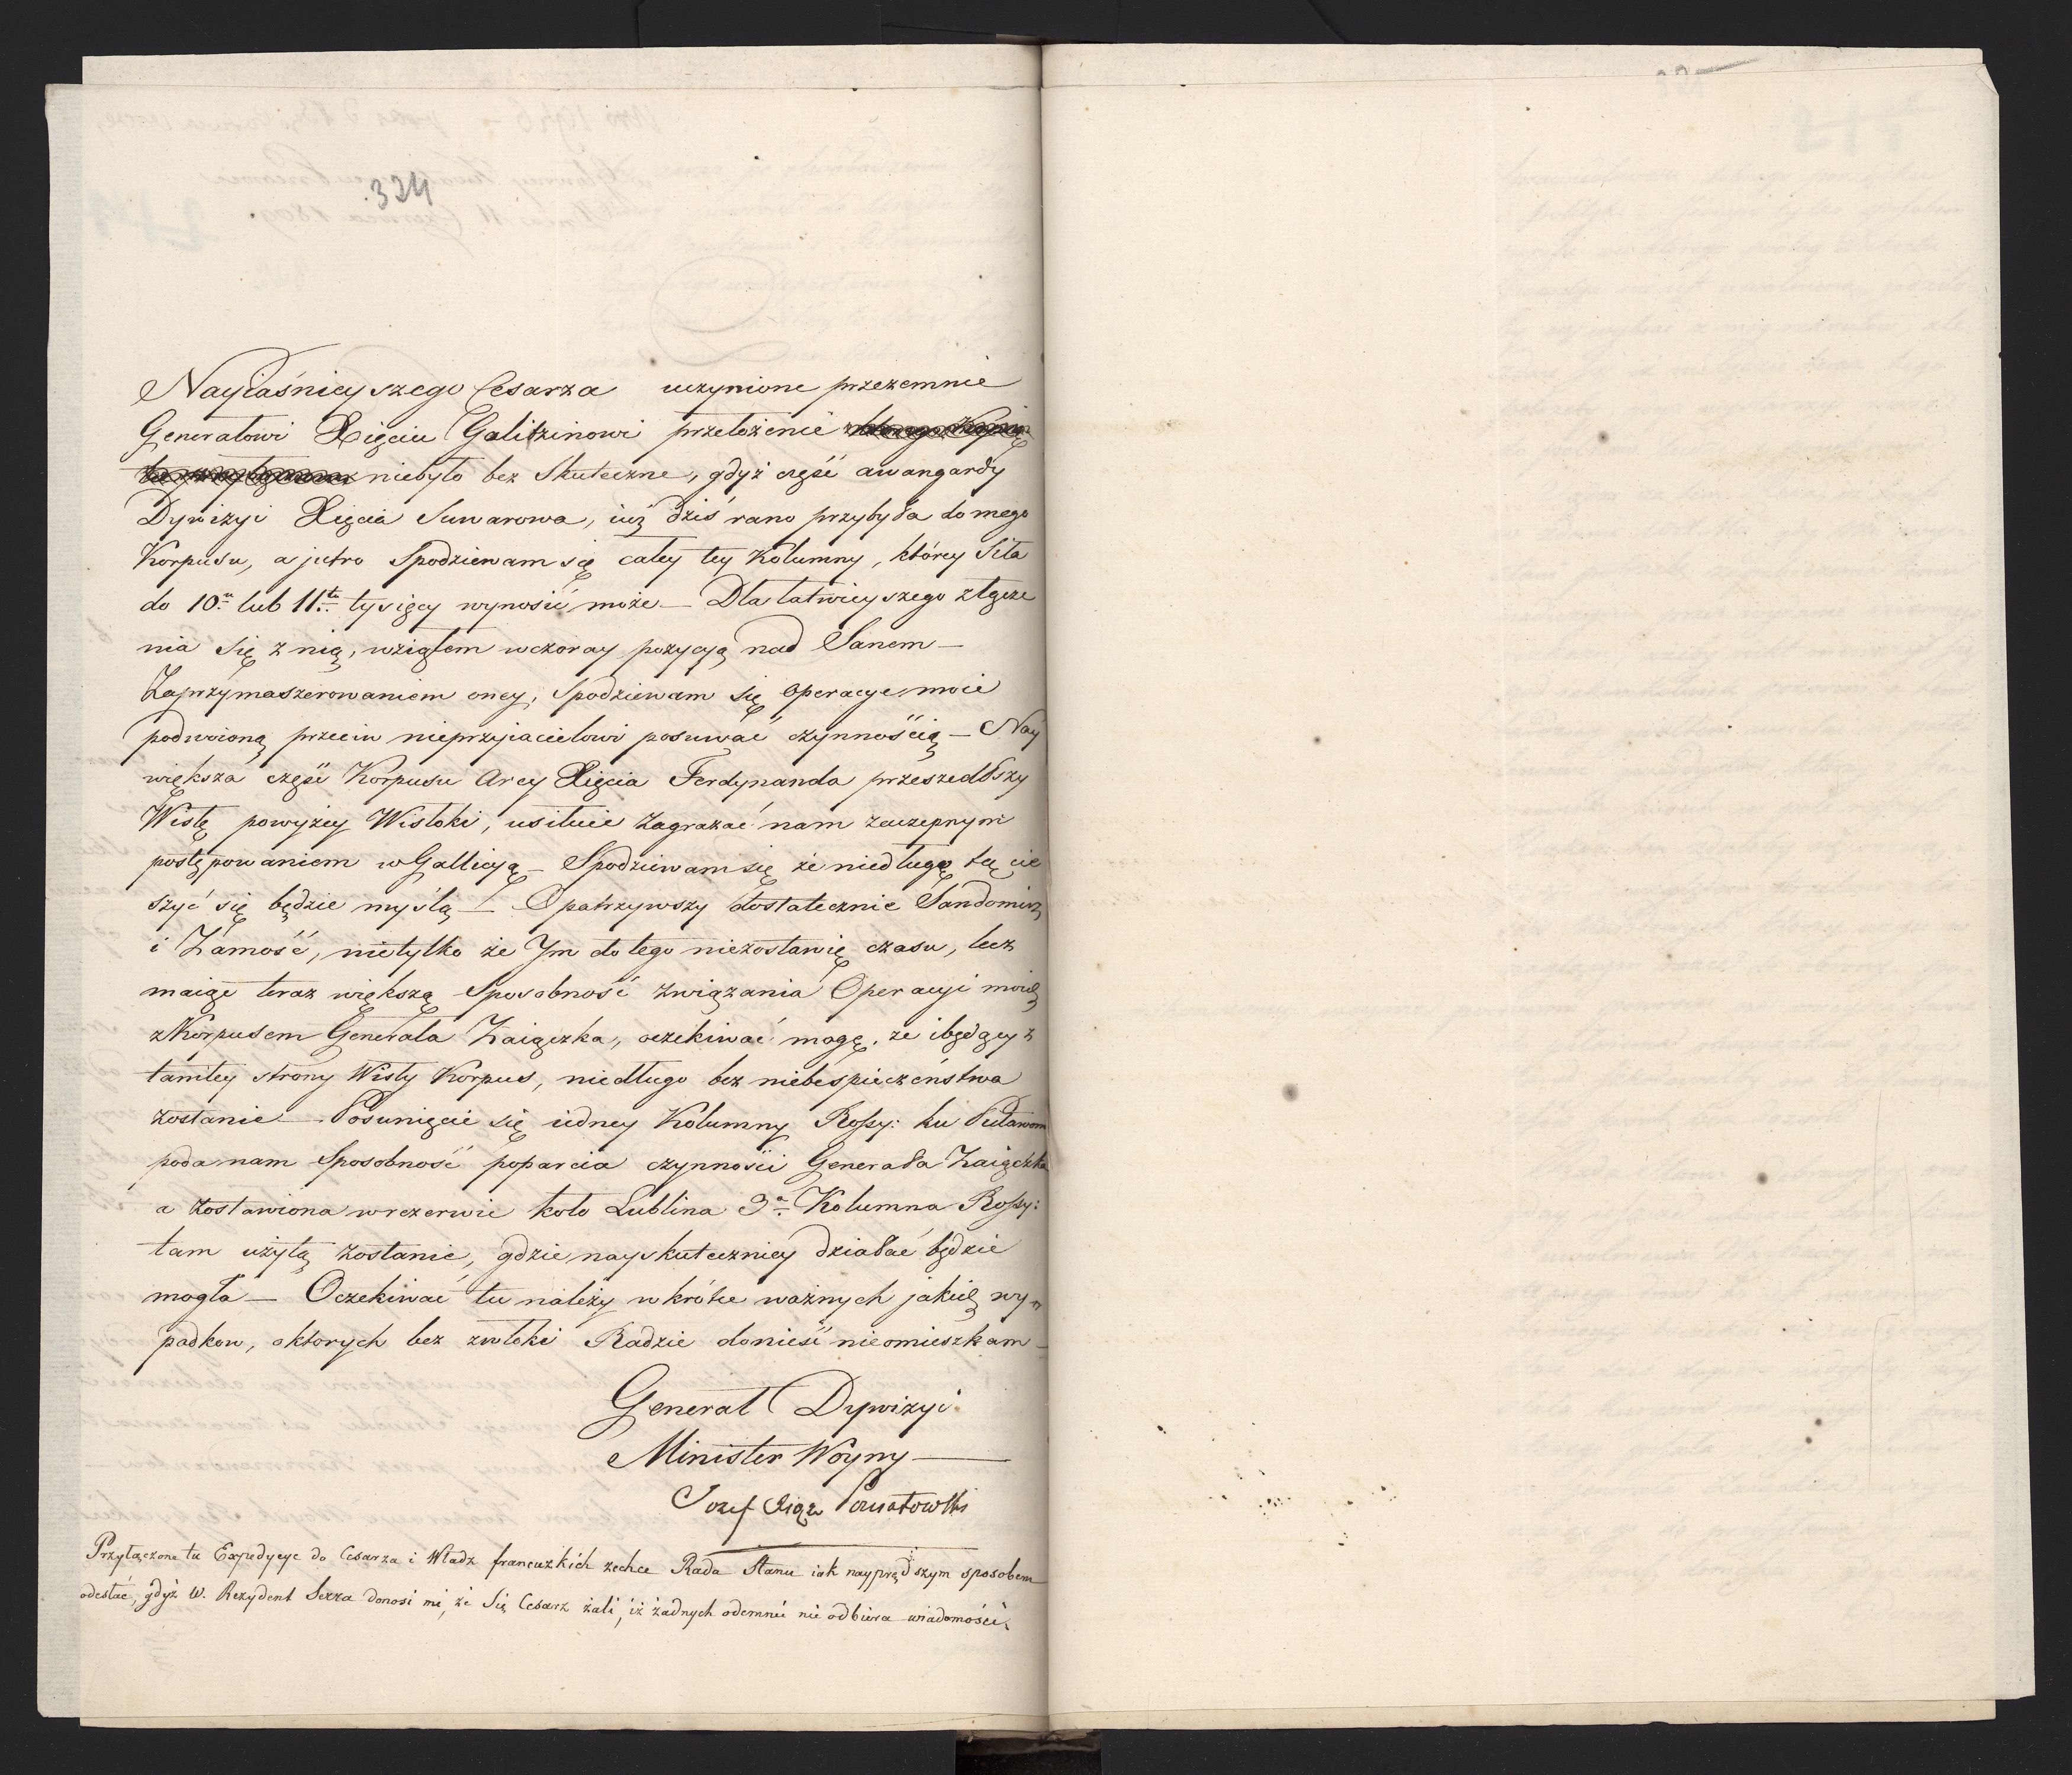 324
Nayiaśnieyszego Cesarza uczynione przezemnie
Generałowi Xięciu Galitzinowi przełożenie
niebyło bez Skuteczne, gdyż część awangardy
Dywizyi Xięcia Suwarowa, iuż dziś rano przybyła do mego
Korpusu, a jutro Spodziewam się całey tey Kolumny, którey Siła
do 10u lub 11tu tysięcy wynosić może — Dla łatwieyszego złącze
nia się z nią, wziąłem wczoray pozycyą nad Sanem —
Zaprzymaszerowaniem oney, Spodziewam się operacye moie
podwoioną przeciw nieprzyiacielowi posuwać czynnością — Nay
większa część Korpusu Arcy Xięcia Ferdynanda przeszedłszy
Wisłę powyżey Wisłoki, usiłuie zagrażać nam zaczepnym
postępowaniem w Gallicyą — Spodziewam się że niedługo tą cie
szyć się będzie myślą — Opatrzywszy dostatecznie Sandomirz
i Zamość, nietylko że Ym do tego niezostawię czasu, lecz
maiąc teraz większą Sposobność związania Operacyi moich
z Korpusem Generała Zaiączka, oczekiwać mogę, że i będący z
tamtey strony Wisły Korpus, niedługo bez niebespieczeństwa
zostanie — Posunięcie się iedney Kolumny Rossy: ku Puławom
poda nam Sposobność poparcia czynności Generała Zaiączka
a zostawiona w rezerwie koło Lublina 3a Kolumna Rossy:
tam użytą zostanie, gdzie nayskuteczniey działać będzie
mogła — Oczekiwać tu należy wkrótce ważnych jakich wy=
padkow, o ktorych bez zwłoki Radzie donieść nieomieszkam —
Generał Dywizyi
Minister Woyny —
Jozef Xiąże Poniatowski
Przyłączone tu Expedycye do Cesarza i Władz francuzkich zechce Rada Stanu iak nayprędszym sposobem
odesłać, gdyż W. Rezydent Serra donosi mi, że Się Cesarz żali, iż żadnych odemnie nie odbiera wiadomości.